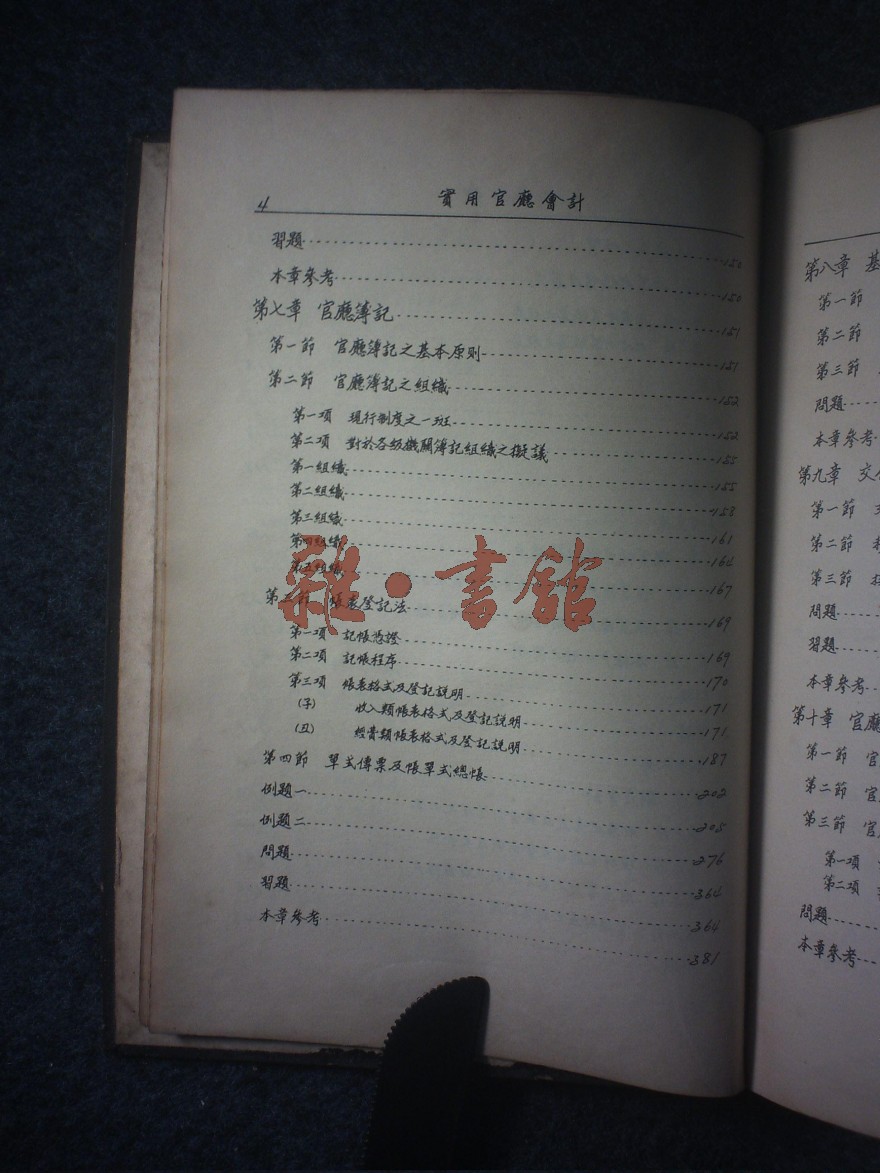 4 實用官廳會計
習題 150
本章參考 150
第七章 官廳簿記 151
第一節 官廳簿記之基本原則 151
第二節 官廳簿記之組織 152
第一項 現行制度之一班 152
第二項 對於各級機關簿記組織之擬議 155
第一組織 155
第二組織 158
第三組織 161
第四組織 164
第五組織 167
第三節 帳表登記法 169
第一項 記帳憑證 169
第二項 記帳程序 170
第三項 帳表格式及登記說明 171
(子) 收入類帳表格式及登記說明 171
(丑) 經費類帳表格式及登記說明 187
第四節 單式傳票及帳單式總帳 202
例題一 205
例題二 276
問題 364
習題 364
本章參考 381
雜·書館
第八章 基
第一節
第二節
第三節
問題
本章參考
第九章 交
第一節
第二節
第三節
問題
習題
本章參考
第十章 官廳
第一節 官
第二節 官
第三節 官
第一項
第二項
問題
本章參考